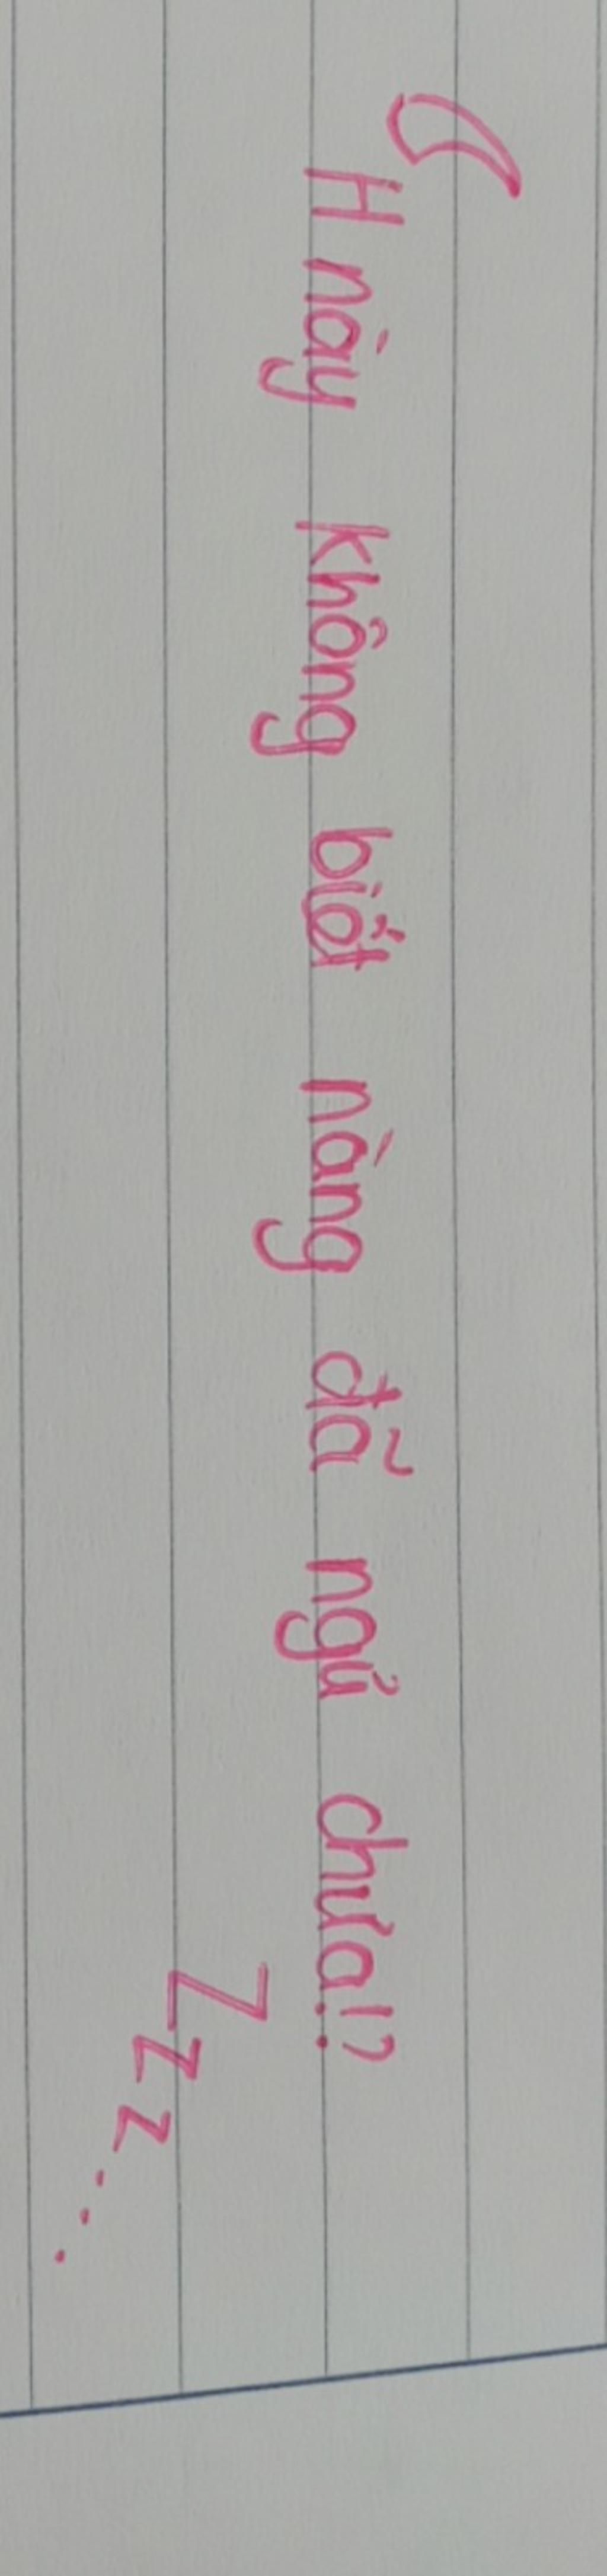 H này không biết nàng đã ngủ chưa!?
Zzz...